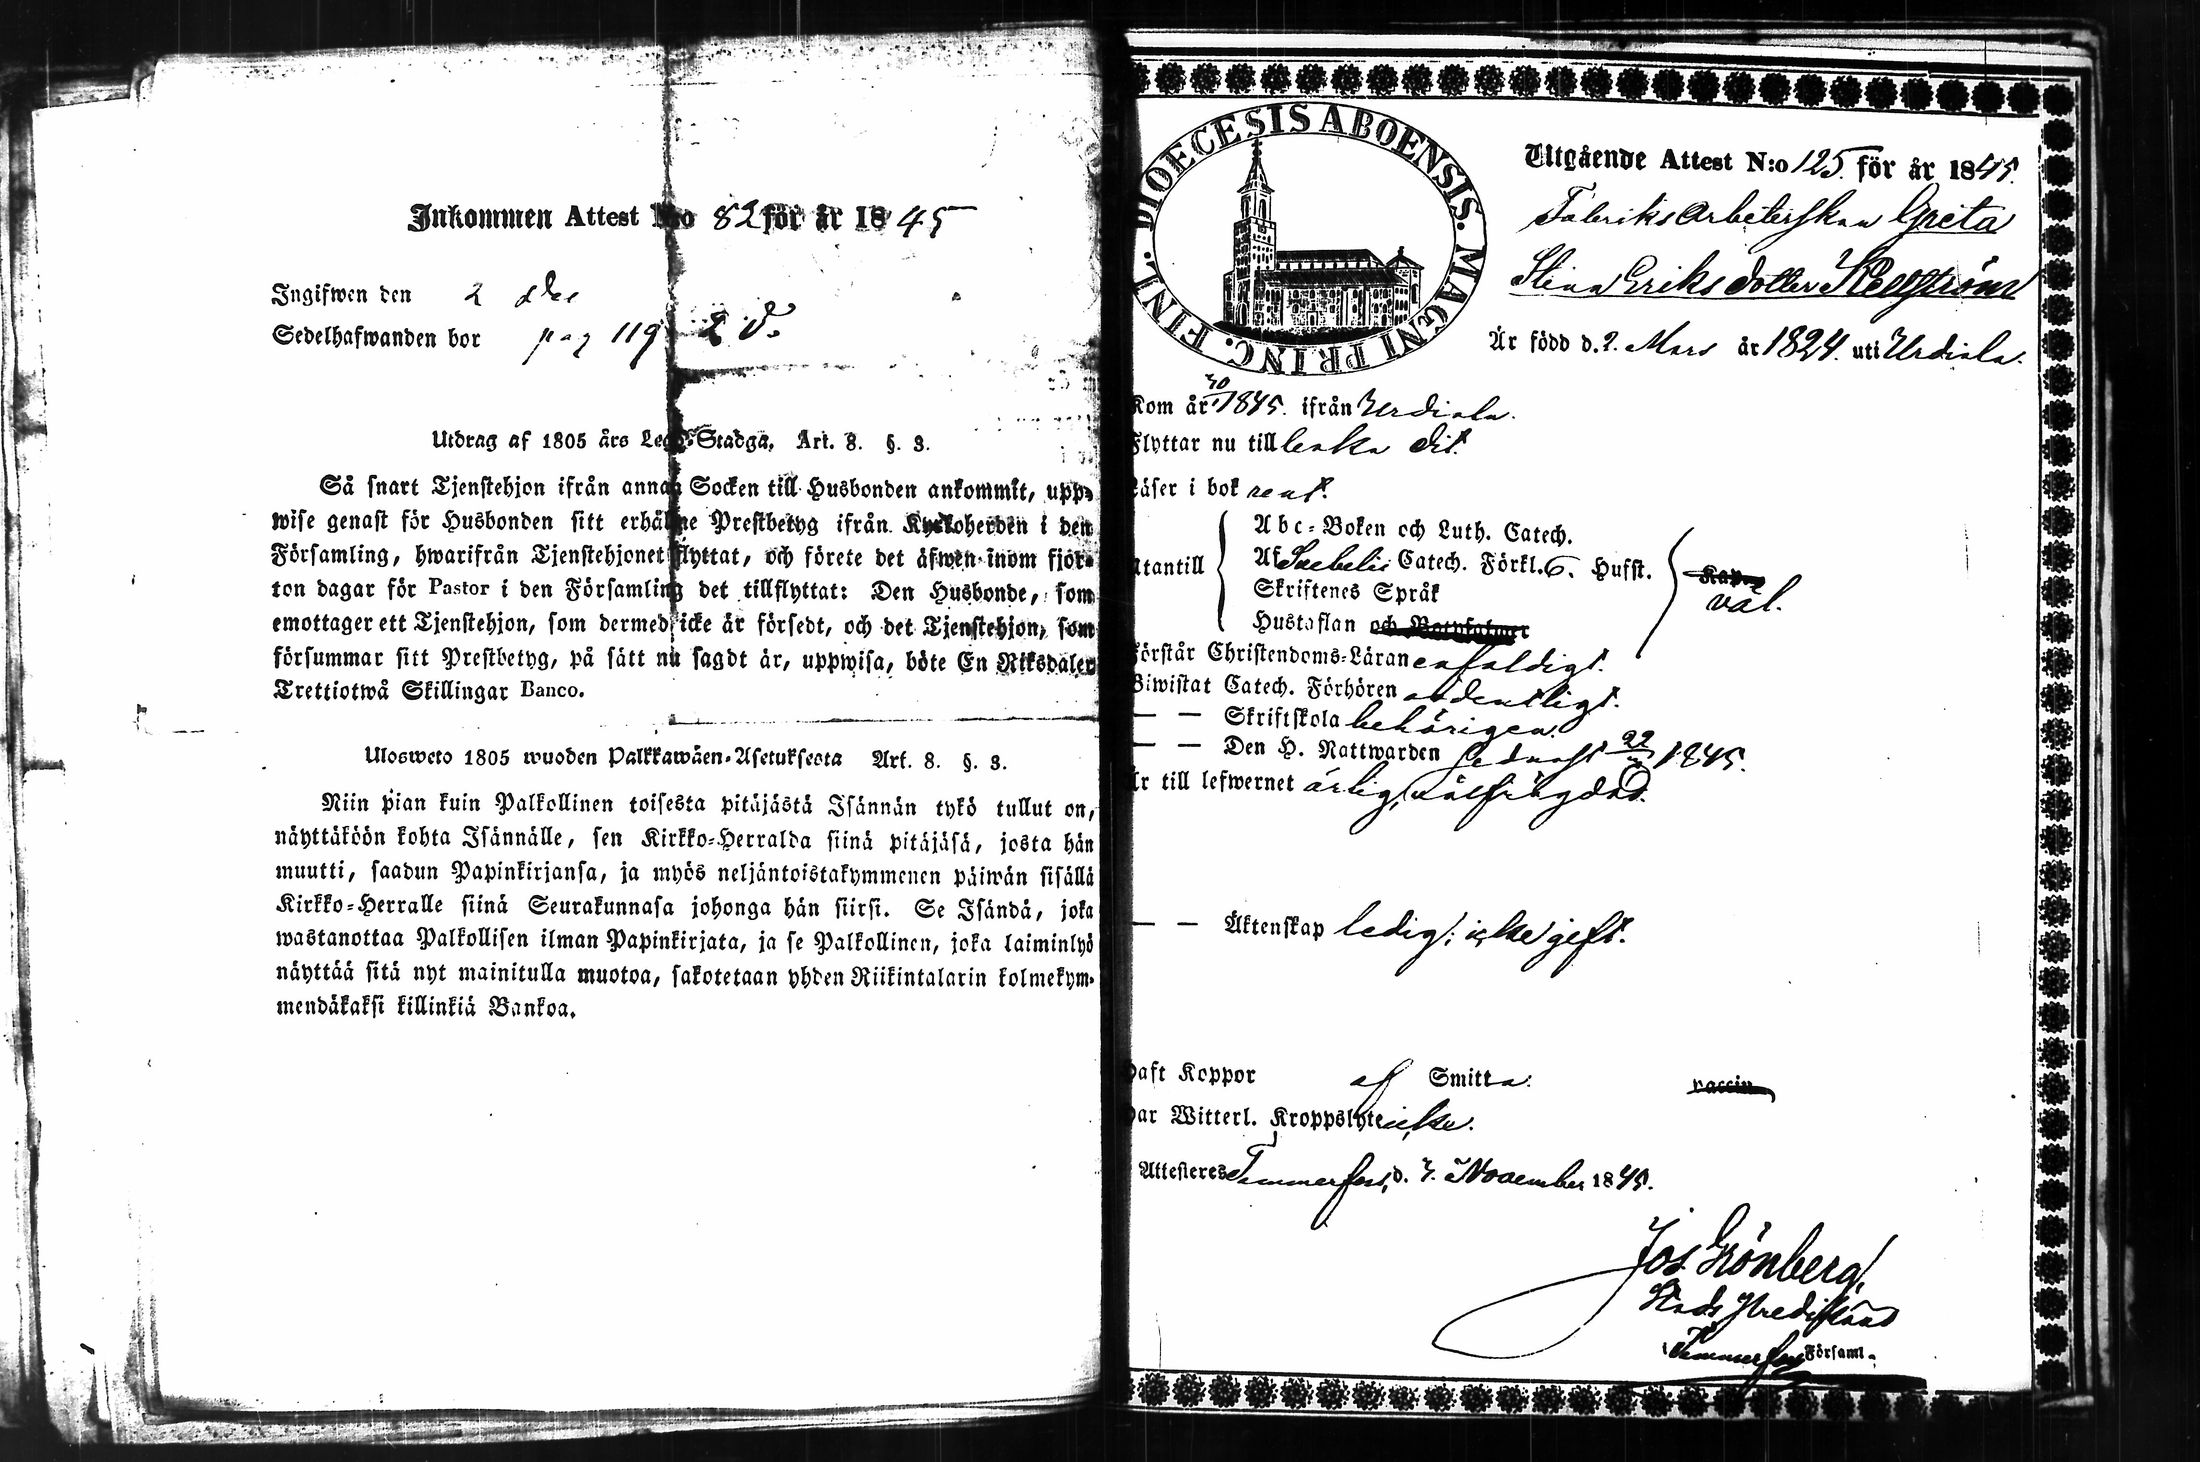 Inkommen Attest N:o 82 för år 1845
Ingifwen den 2 Dec
Sedelhafwanden bor pag 119
Utdrag af 1805 års Lego-Stadga, Art. 8. §. 3.
Så snart Tjenstehjon ifrån annan Socken till Husbonden ankommit, upp-
wise genast för Husbonden sitt erhållne Prestbetyg ifrån Kyrkoherden i den
Församling, hwarifrån Tjenstehjonet flyttat, och förete det äfwen inom fjor-
ton dagar för Pastor i den Församling det tillflyttat: Den Husbonde, som
emottager ett Tjenstehjon, som dermed icke är försedt, och det Tjenstehjon, som
försummar sitt Prestbetyg, på sätt nu sagdt är, uppwisa, böte En Riksdaler
Trettiotwå Skillingar Banco.
Ulosweto 1805 wuoden Palkkawäen-Asetuksesta Art. 8. §. 3.
Niin pian kuin Palkollinen toisesta pitäjästä Isännän tykö tullut on,
näyttäköön kohta Isännälle, sen Kirkko-Herralda siinä pitäjäsä, josta hän
muutti, saadun Papinkirjansa, ja myös neljäntoistakymmenen päiwän sisällä
Kirkko-Herralle siinä Seurakunnasa johonga hän siirsi. Se Isändä, joka
wastanottaa Palkollisen ilman Papinkirjata, ja se Palkollinen, joka laiminlyö
näyttää sitä nyt mainitulla muotoa, sakotetaan yhden Riikintalarin kolmekym-
mendäkaksi killinkiä Bankoa.
DIOECESIS ABOENSIS. MAGNI PRINC. FINL.
Utgående Attest N:o 125. för år 1845.
Fabriks Arbeterskan Greta
Stina Eriks dotter Hellström
Är född d. 2. Mars år 1824. uti Urdiala.
Kom år 1845. ifrån Urdiala.
Flyttar nu till baka dit.
Läser i bok rent.
Utantill
Abc-Boken och Luth. Catech.
Af Svebelii Catech. Förkl. 6. Hufst.
Skriftenes Språk
Hustaflan och Botpsalmer
väl.
Förstår Christendoms-Läran enfaldigt.
Biwistat Catech. Förhören ordentligt.
— — Skriftskola behörigen.
— — Den H. Nattwarden sednast 22 1845.
Är till lefwernet ärlig, välfrägdad.
— — Äktenskap ledig; icke gift.
Haft Koppor af Smitta. vaccin
Har Witterl. Kroppslyte icke.
Attesteres Tammerfors, d. 3. November 1845.
Jos. Grönberg,
Stads Predikant
Tammerfors Församl.